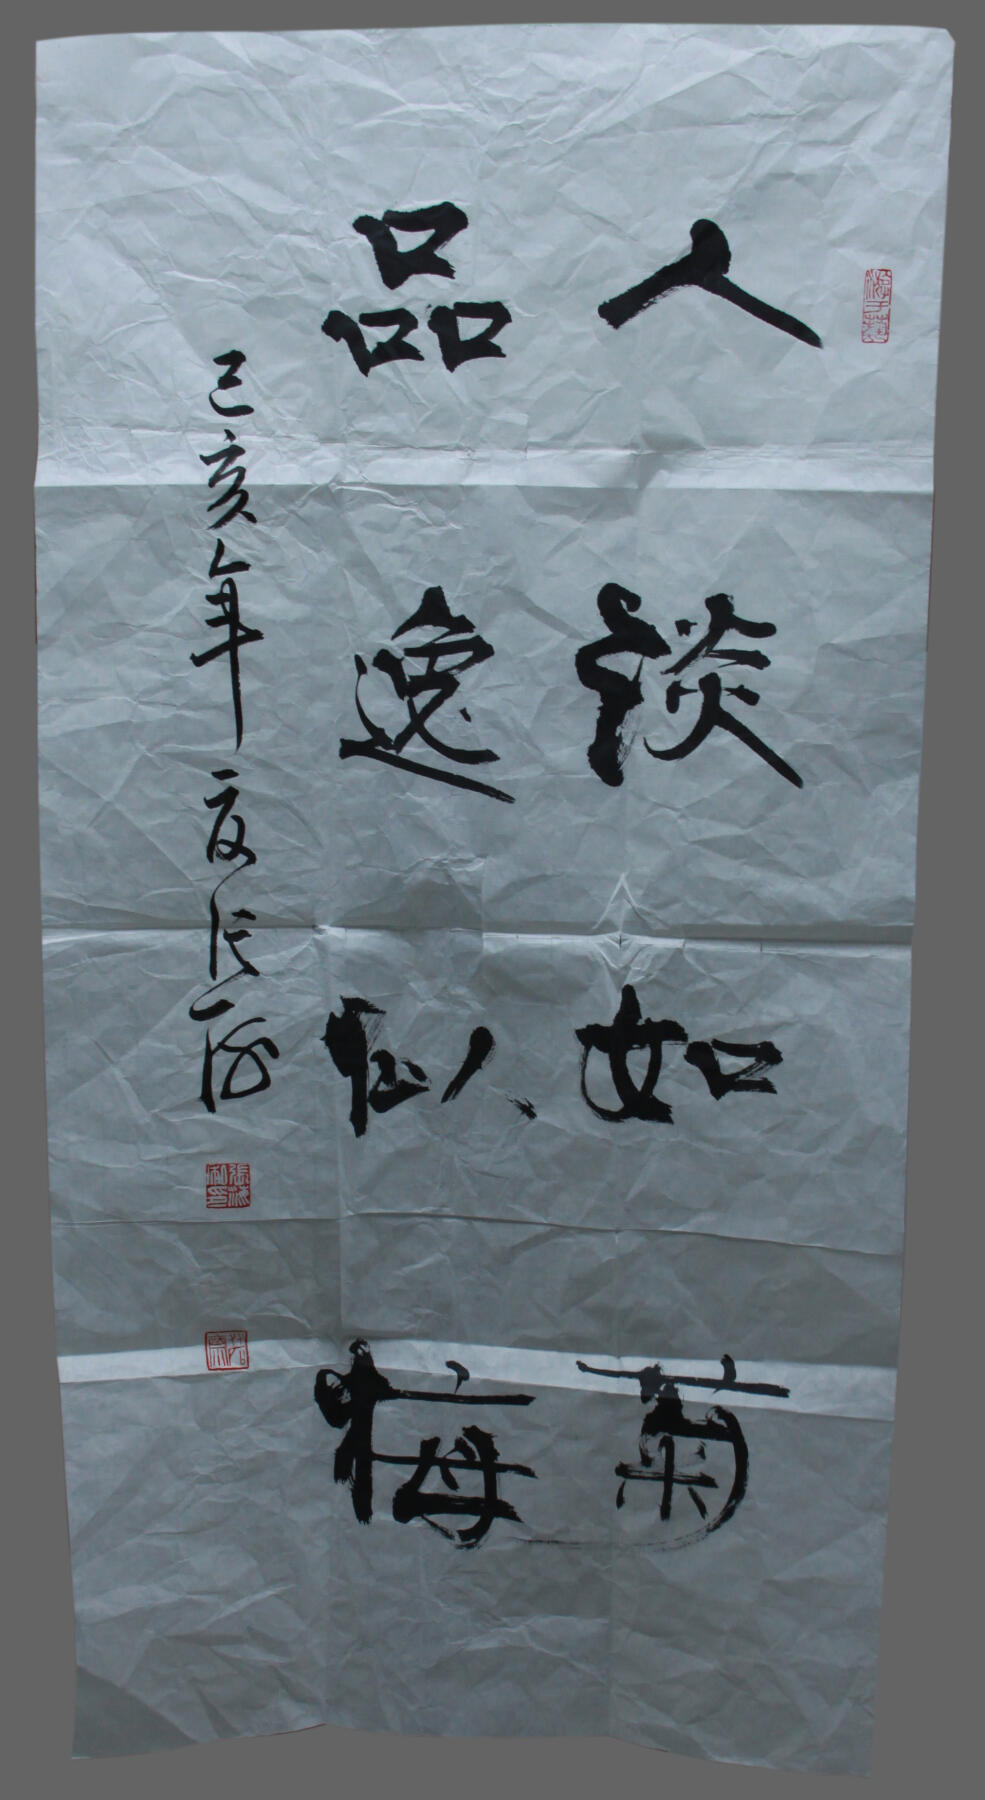 人淡如菊
品逸似梅
己亥年夏张海